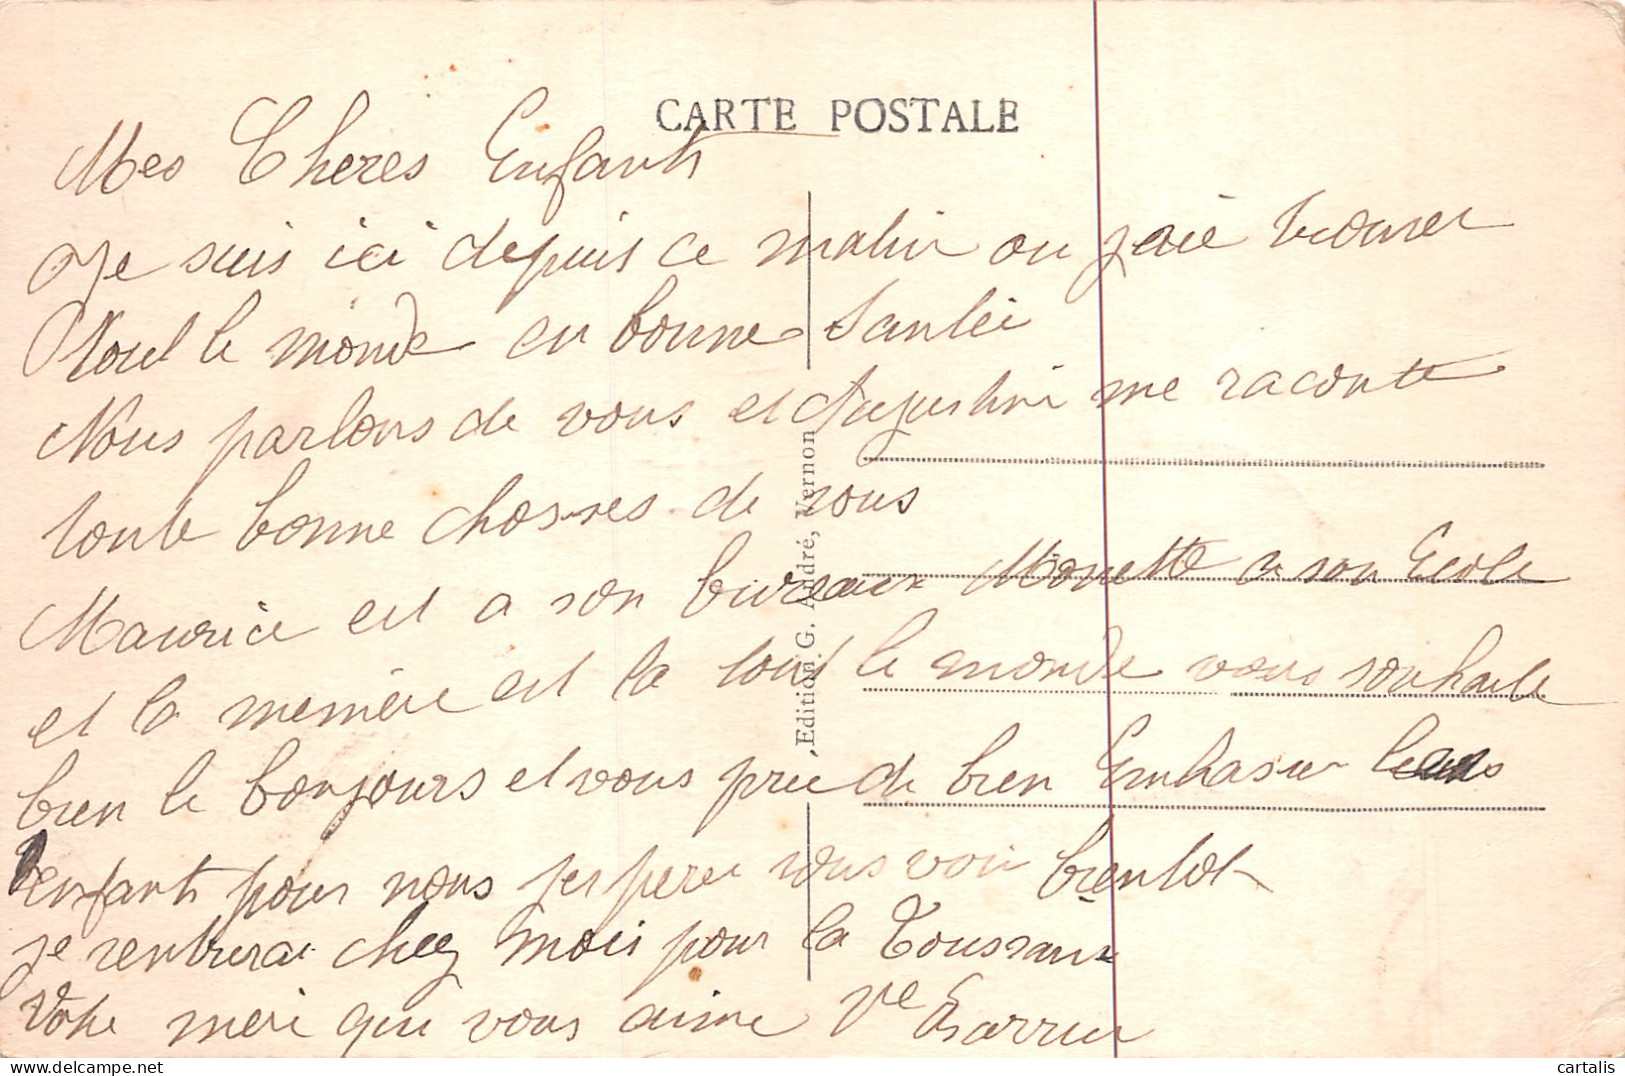 CARTE POSTALE
Mes Cheres Enfants
Je suis ici depuis ce matin ou jaie trouver
tout le monde en bonne Santée
Nous parlons de vous et Augustine me raconte
toute bonne chosses de vous
Maurice est a son bureaux Monette a son Ecole
et la memere est la tout le monde vous souhaite
bien le bonjours et vous prie de bien Embrasser les
enfants pour nous jespere vous voir bientot
je rentrerai chez mois pour la Toussaint
Votre mere qui vous aime Ve
Edition G. André, Vernon
cartalis